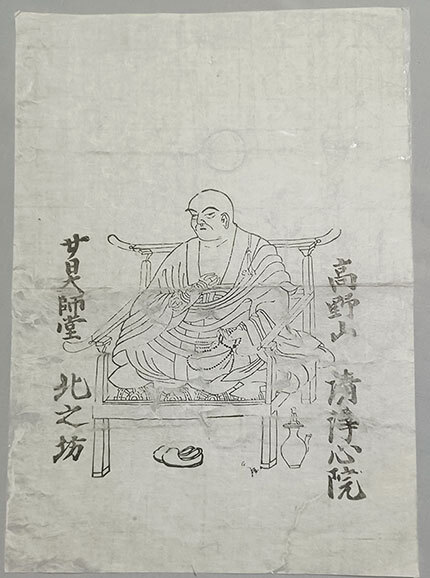 高野山 清浄心院
廿日大師堂 北之坊